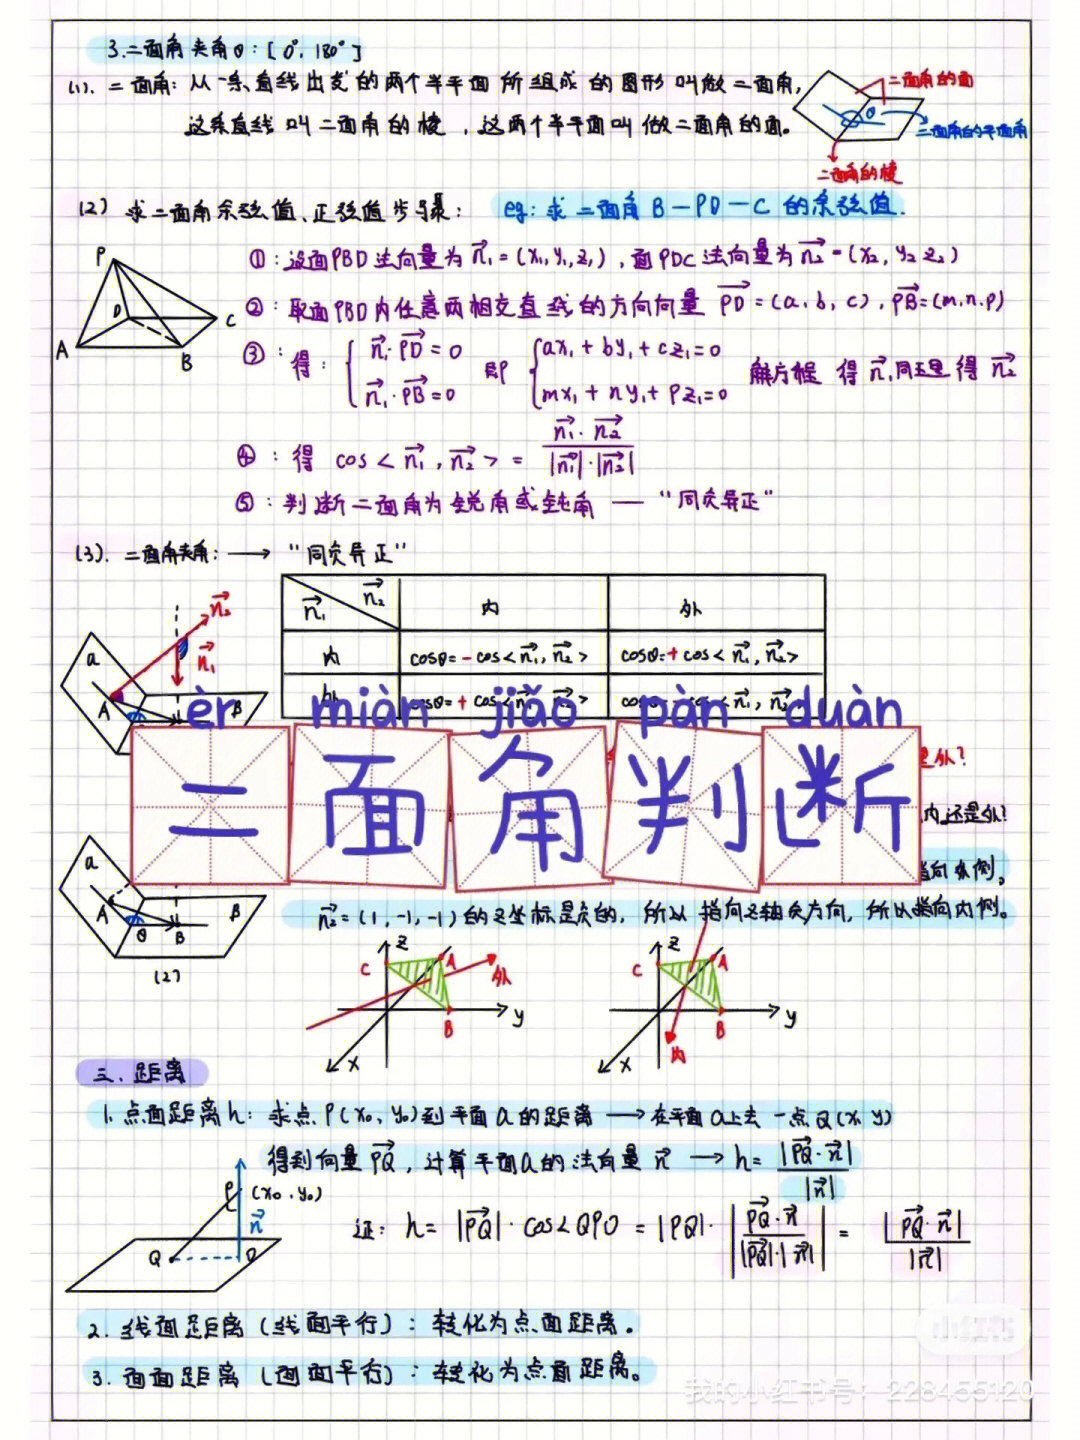 3.二面角夹角θ:[0°,180°]
(1).二面角:从一条直线出发的两个半平面所组成的图形叫做二面角,
这条直线叫二面角的棱,这两个半平面叫做二面角的面。
二面角的面
θ
二面角的平面角
二面角的棱
(2)求二面角余弦值、正弦值步骤: eg:求二面角B-PD-C的余弦值.
P
D
C
A
B
①:设面PBD法向量为n₁=(x₁,y₁,z₁),面PDC法向量为n₂=(x₂,y₂ z₂)
②:取面PBD内任意两相交直线的方向向量PD=(a,b,c),PB=(m.n.p)
③:得:{n₁·PD=0 n₁·PB=0 即 {ax₁+by₁+cz₁=0 mx₁+ny₁+pz₁=0 解方程 得n₁,同理得n₂
④:得 cos<n₁,n₂>= n₁·n₂ / |n₁|·|n₂|
⑤:判断二面角为锐角或钝角——“同负异正”
(3).二面角夹角:→“同负异正”
n₁ n₂ 内 外
内 cosθ=-cos<n₁,n₂> cosθ=+cos<n₁,n₂>
n₂
n₁
a
A
β
èr miàn jiǎo pàn duàn
二面角判断
是外?
内还是外?
a
A
θ
B
β
(2)
n₂=(1,-1,-1)的z坐标是负的,所以指向z轴负方向,所以指向内侧。
z
C
A
外
B
y
x
z
C
A
B
y
内
x
三.距离
1.点面距离h:求点P(x₀,y₀)到平面a的距离→在平面a上去一点Q(x,y)
得到向量PQ,计算平面a的法向量n→h=|PQ·n| / |n|
P(x₀,y₀)
n
Q
O
证: h=|PQ|·cos∠QPO=|PQ|·|PQ·n / |PQ|·|n||=|PQ·n| / |n|
2.线面距离(线面平行):转化为点面距离。
3.面面距离(面面平行):转化为点面距离。
小红书
我的小红书号:228455120